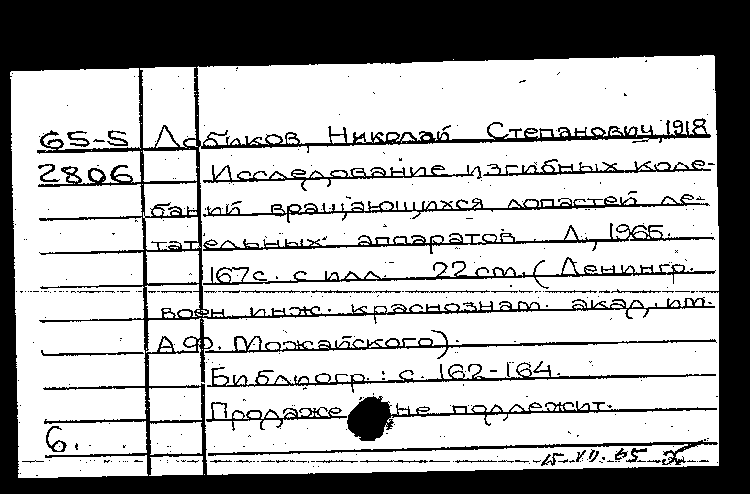 65-5 Лобиков, Николай Степанович, 1918
2806 Исследование изгибных коле-
баний вращающихся лопастей ле-
тательных аппаратов Л., 1965.
167с. с илл. 22 cm. (Ленингр.
воен. инж. краснознам. акад. им.
А.Ф. Можайского).
Библиогр.: с. 162-164.
Продаже не подлежит.
6.
15.VII.65